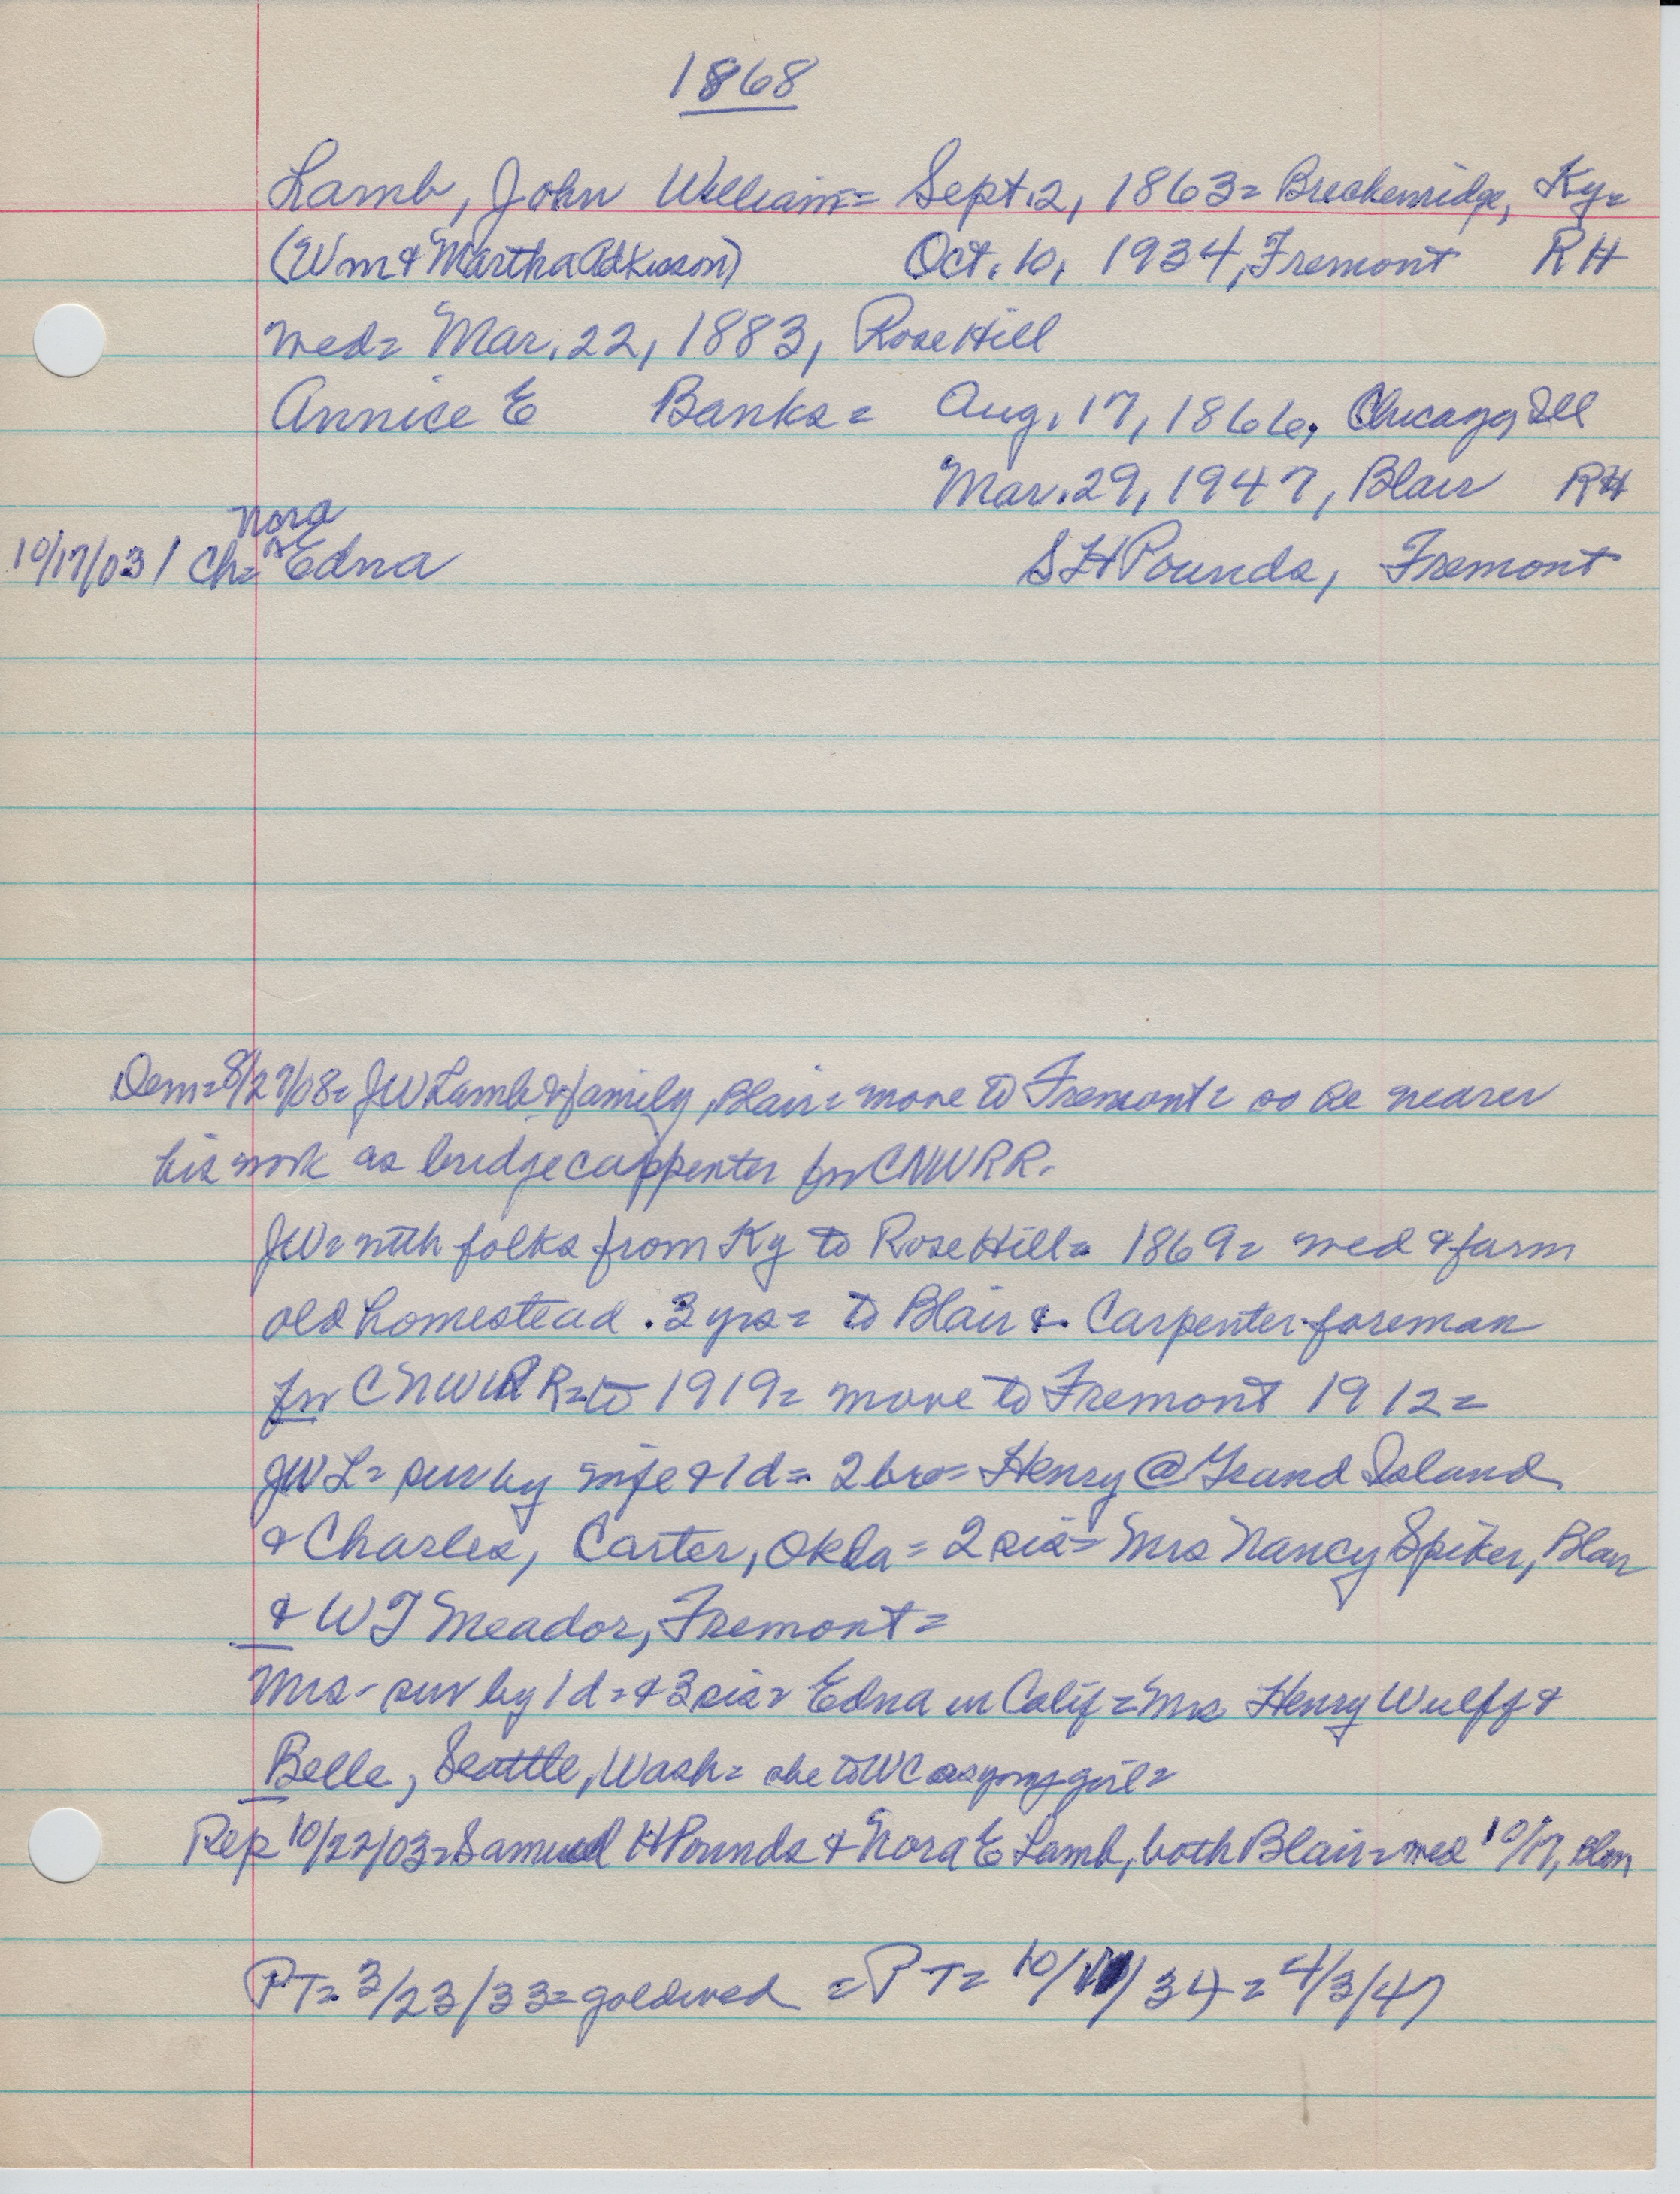 1868
Lamb, John William= Sept. 2, 1863= Breckenridge, Ky=
(Wm & Martha Adkisson) Oct. 10, 1934, Fremont RH
wed= Mar. 22, 1883, Rose Hill
Annice E Banks= Aug. 17, 1866, Chicago, Ill
Mar. 29, 1947, Blair RH
Nora
10/17/03 / Ch= Edna S H Pounds, Fremont
Dem= 8/27/08= JW Lamb & family, Blair= move to Fremont= so be nearer
his work as bridge carpenter for CNWRR.
JW= with folks from Ky to Rose Hill= 1869= wed & farm
old homestead. 3 yrs= to Blair & Carpenter foreman
for CNWRR= to 1919= move to Fremont 1912=
JWL= surv by wife & 1 d= 2 bro= Henry @ Grand Island
& Charles, Carter, Okla= 2 sis= Mrs Nancy Spiker, Blair
& W T Meador, Fremont=
Mrs- surv by 1 d= & 3 sis= Edna in Calif= Mrs Henry Wulff &
Belle, Seattle, Wash= she to WC as young girl=
Rep 10/22/03= Samuel H Pounds & Nora E Lamb, both Blair= wed 10/17, Blair
PT= 3/23/33= gold wed = PT= 10/11/34= 4/3/47